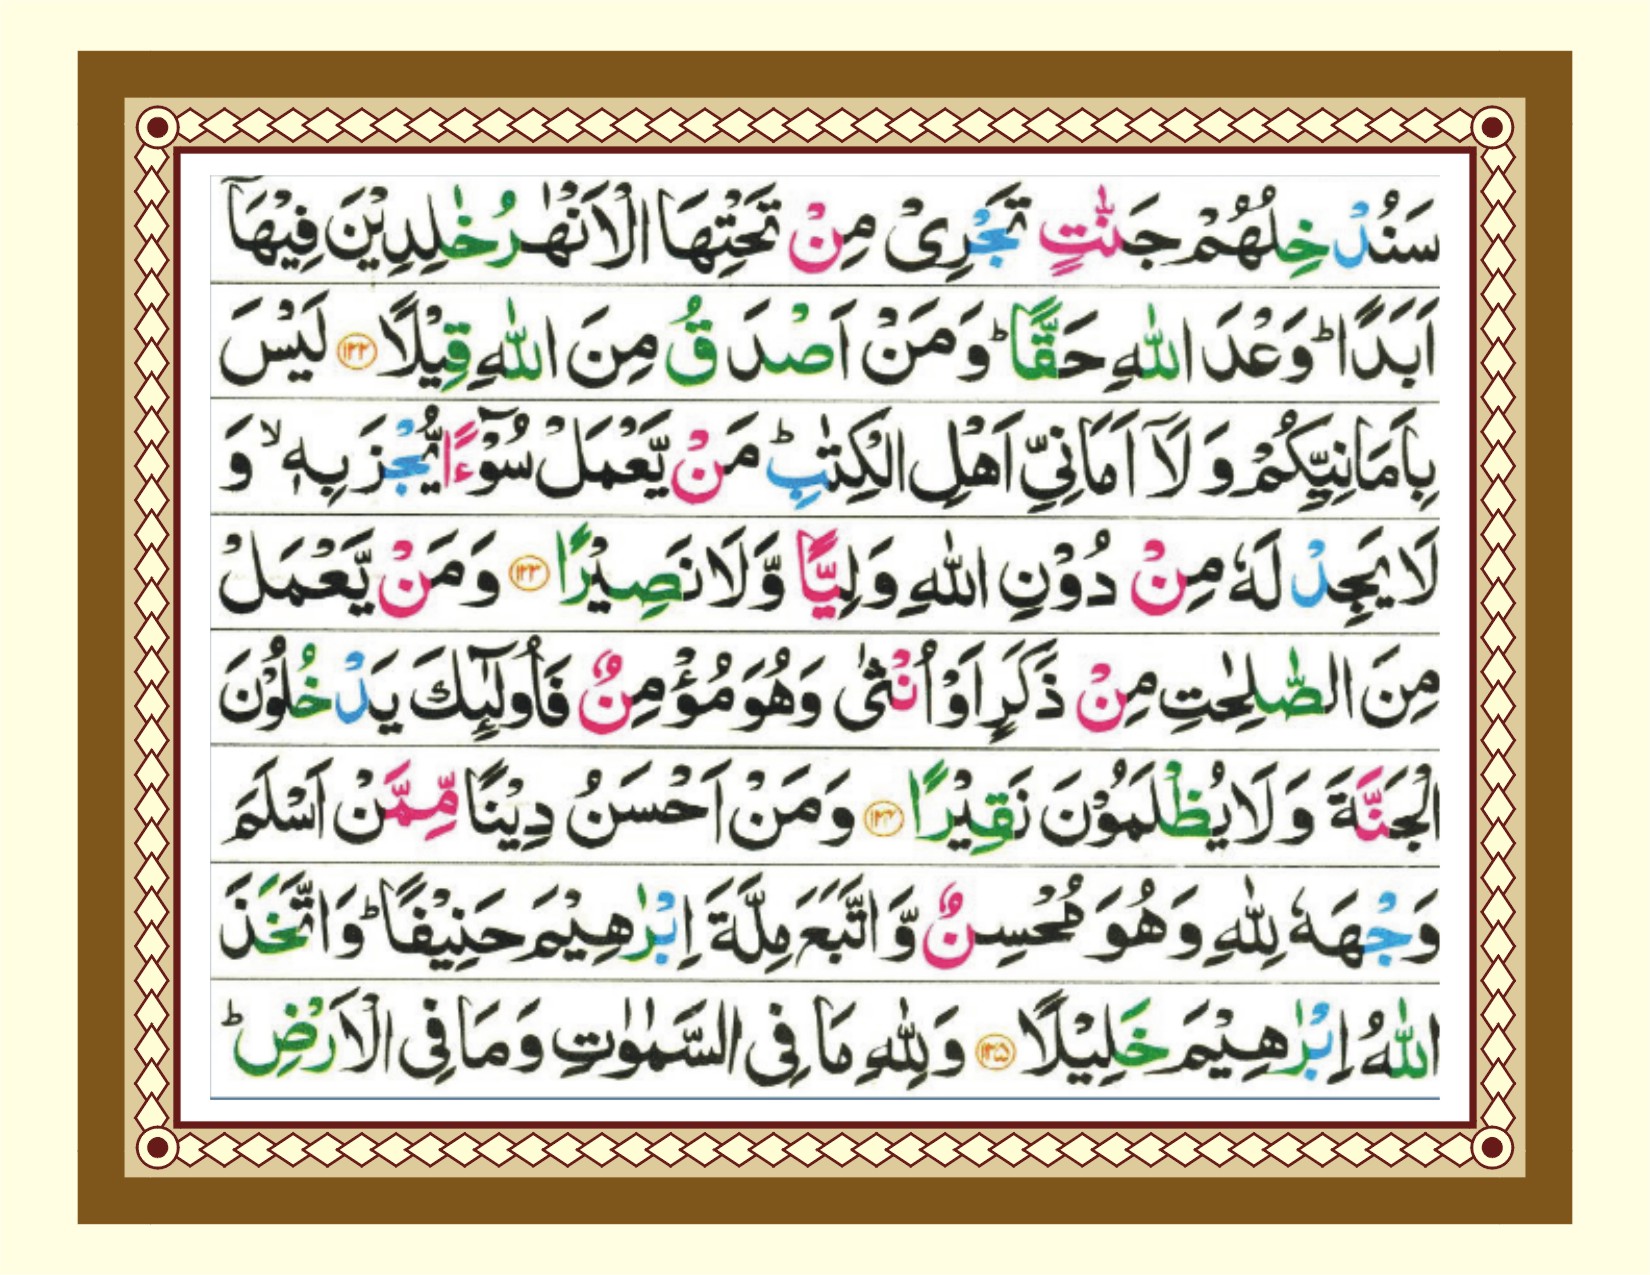 سَنُدْخِلُهُمْ جَنّٰتٍ تَجْرِیْ مِنْ تَحْتِهَا الْاَنْهٰرُ خٰلِدِیْنَ فِیْهَاۤ
اَبَدًا ؕ وَعْدَ اللّٰهِ حَقًّا ؕ وَمَنْ اَصْدَقُ مِنَ اللّٰهِ قِیْلًا ﴿۱۲۲﴾ لَیْسَ
بِاَمَانِیِّكُمْ وَ لَاۤ اَمَانِیِّ اَهْلِ الْكِتٰبِ ؕ مَنْ یَّعْمَلْ سُوْٓءًا یُّجْزَ بِهٖ ۙ وَ
لَا یَجِدْ لَهٗ مِنْ دُوْنِ اللّٰهِ وَلِیًّا وَّلَا نَصِیْرًا ﴿۱۲۳﴾ وَمَنْ یَّعْمَلْ
مِنَ الصّٰلِحٰتِ مِنْ ذَكَرٍ اَوْ اُنْثٰی وَهُوَ مُؤْمِنٌ فَاُولٰٓىِٕكَ یَدْخُلُوْنَ
الْجَنَّةَ وَلَا یُظْلَمُوْنَ نَقِیْرًا ﴿۱۲۴﴾ وَمَنْ اَحْسَنُ دِیْنًا مِّمَّنْ اَسْلَمَ
وَجْهَهٗ لِلّٰهِ وَهُوَ مُحْسِنٌ وَّاتَّبَعَ مِلَّةَ اِبْرٰهِیْمَ حَنِیْفًا ؕ وَاتَّخَذَ
اللّٰهُ اِبْرٰهِیْمَ خَلِیْلًا ﴿۱۲۵﴾ وَلِلّٰهِ مَا فِی السَّمٰوٰتِ وَمَا فِی الْاَرْضِ ؕ